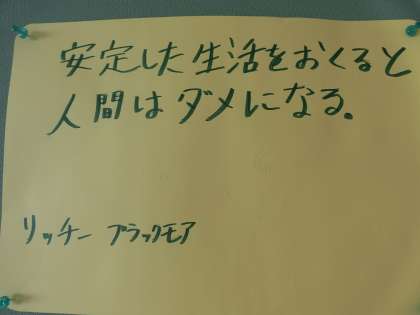 安定した生活をおくると
人間はダメになる。
リッチー ブラックモア